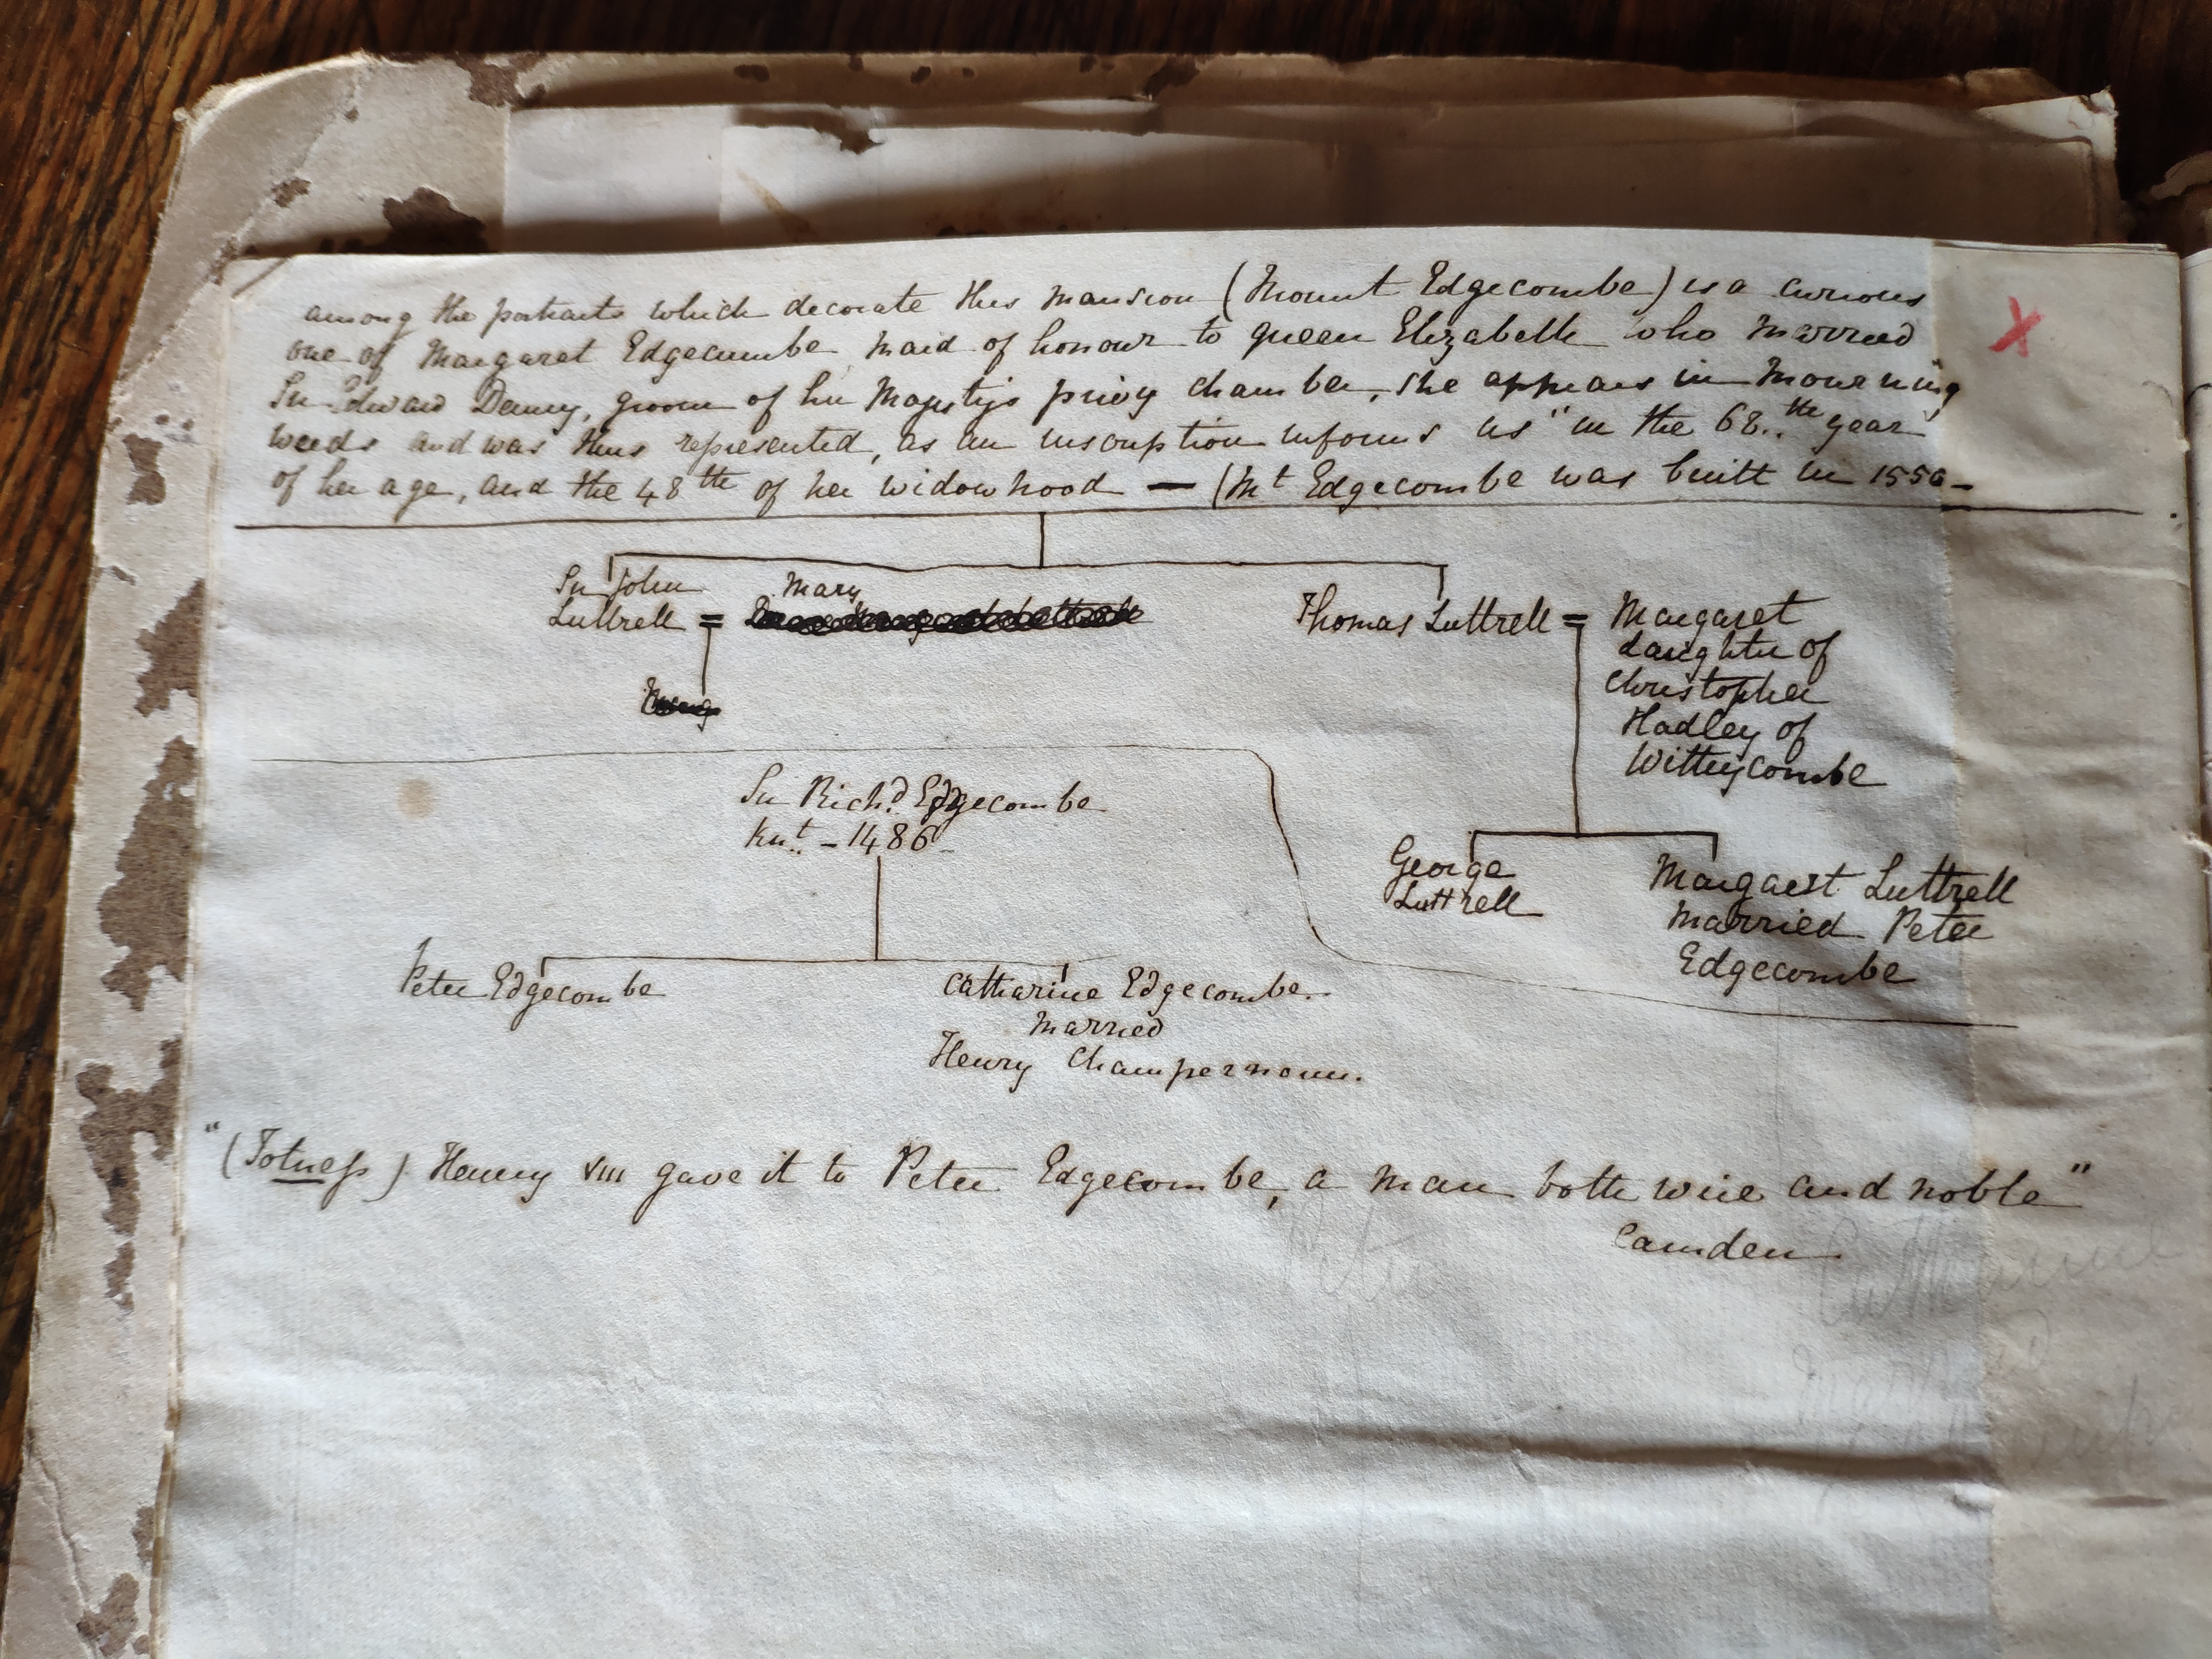 among the portraits which decorate this mansion (Mount Edgecombe) is a curious
one of Margaret Edgecumbe maid of honour to queen Elizabeth who married
Sir Edward Denny, groom of her Majesty's privy chamber, she appears in mourning
weeds and was thus represented, as an inscription informs us "in the 68.th year
of her age, and the 48th of her widowhood — (Mt Edgecombe was built in 1550-
Sir John
Luttrell = Mary
Thomas Luttrell = Margaret
daughter of
Christopher
Hadley of
Wittycombe
George
Luttrell
Margaret Luttrell
Married Peter
Edgecombe
Sir Richd. Edgecombe
Knt. - 1486
Peter Edgecombe
Catharine Edgecombe.
Married
Henry Champernoun.
"(Totness) Henry VIII gave it to Peter Edgecombe, a man both wise and noble"
Camden
Peter